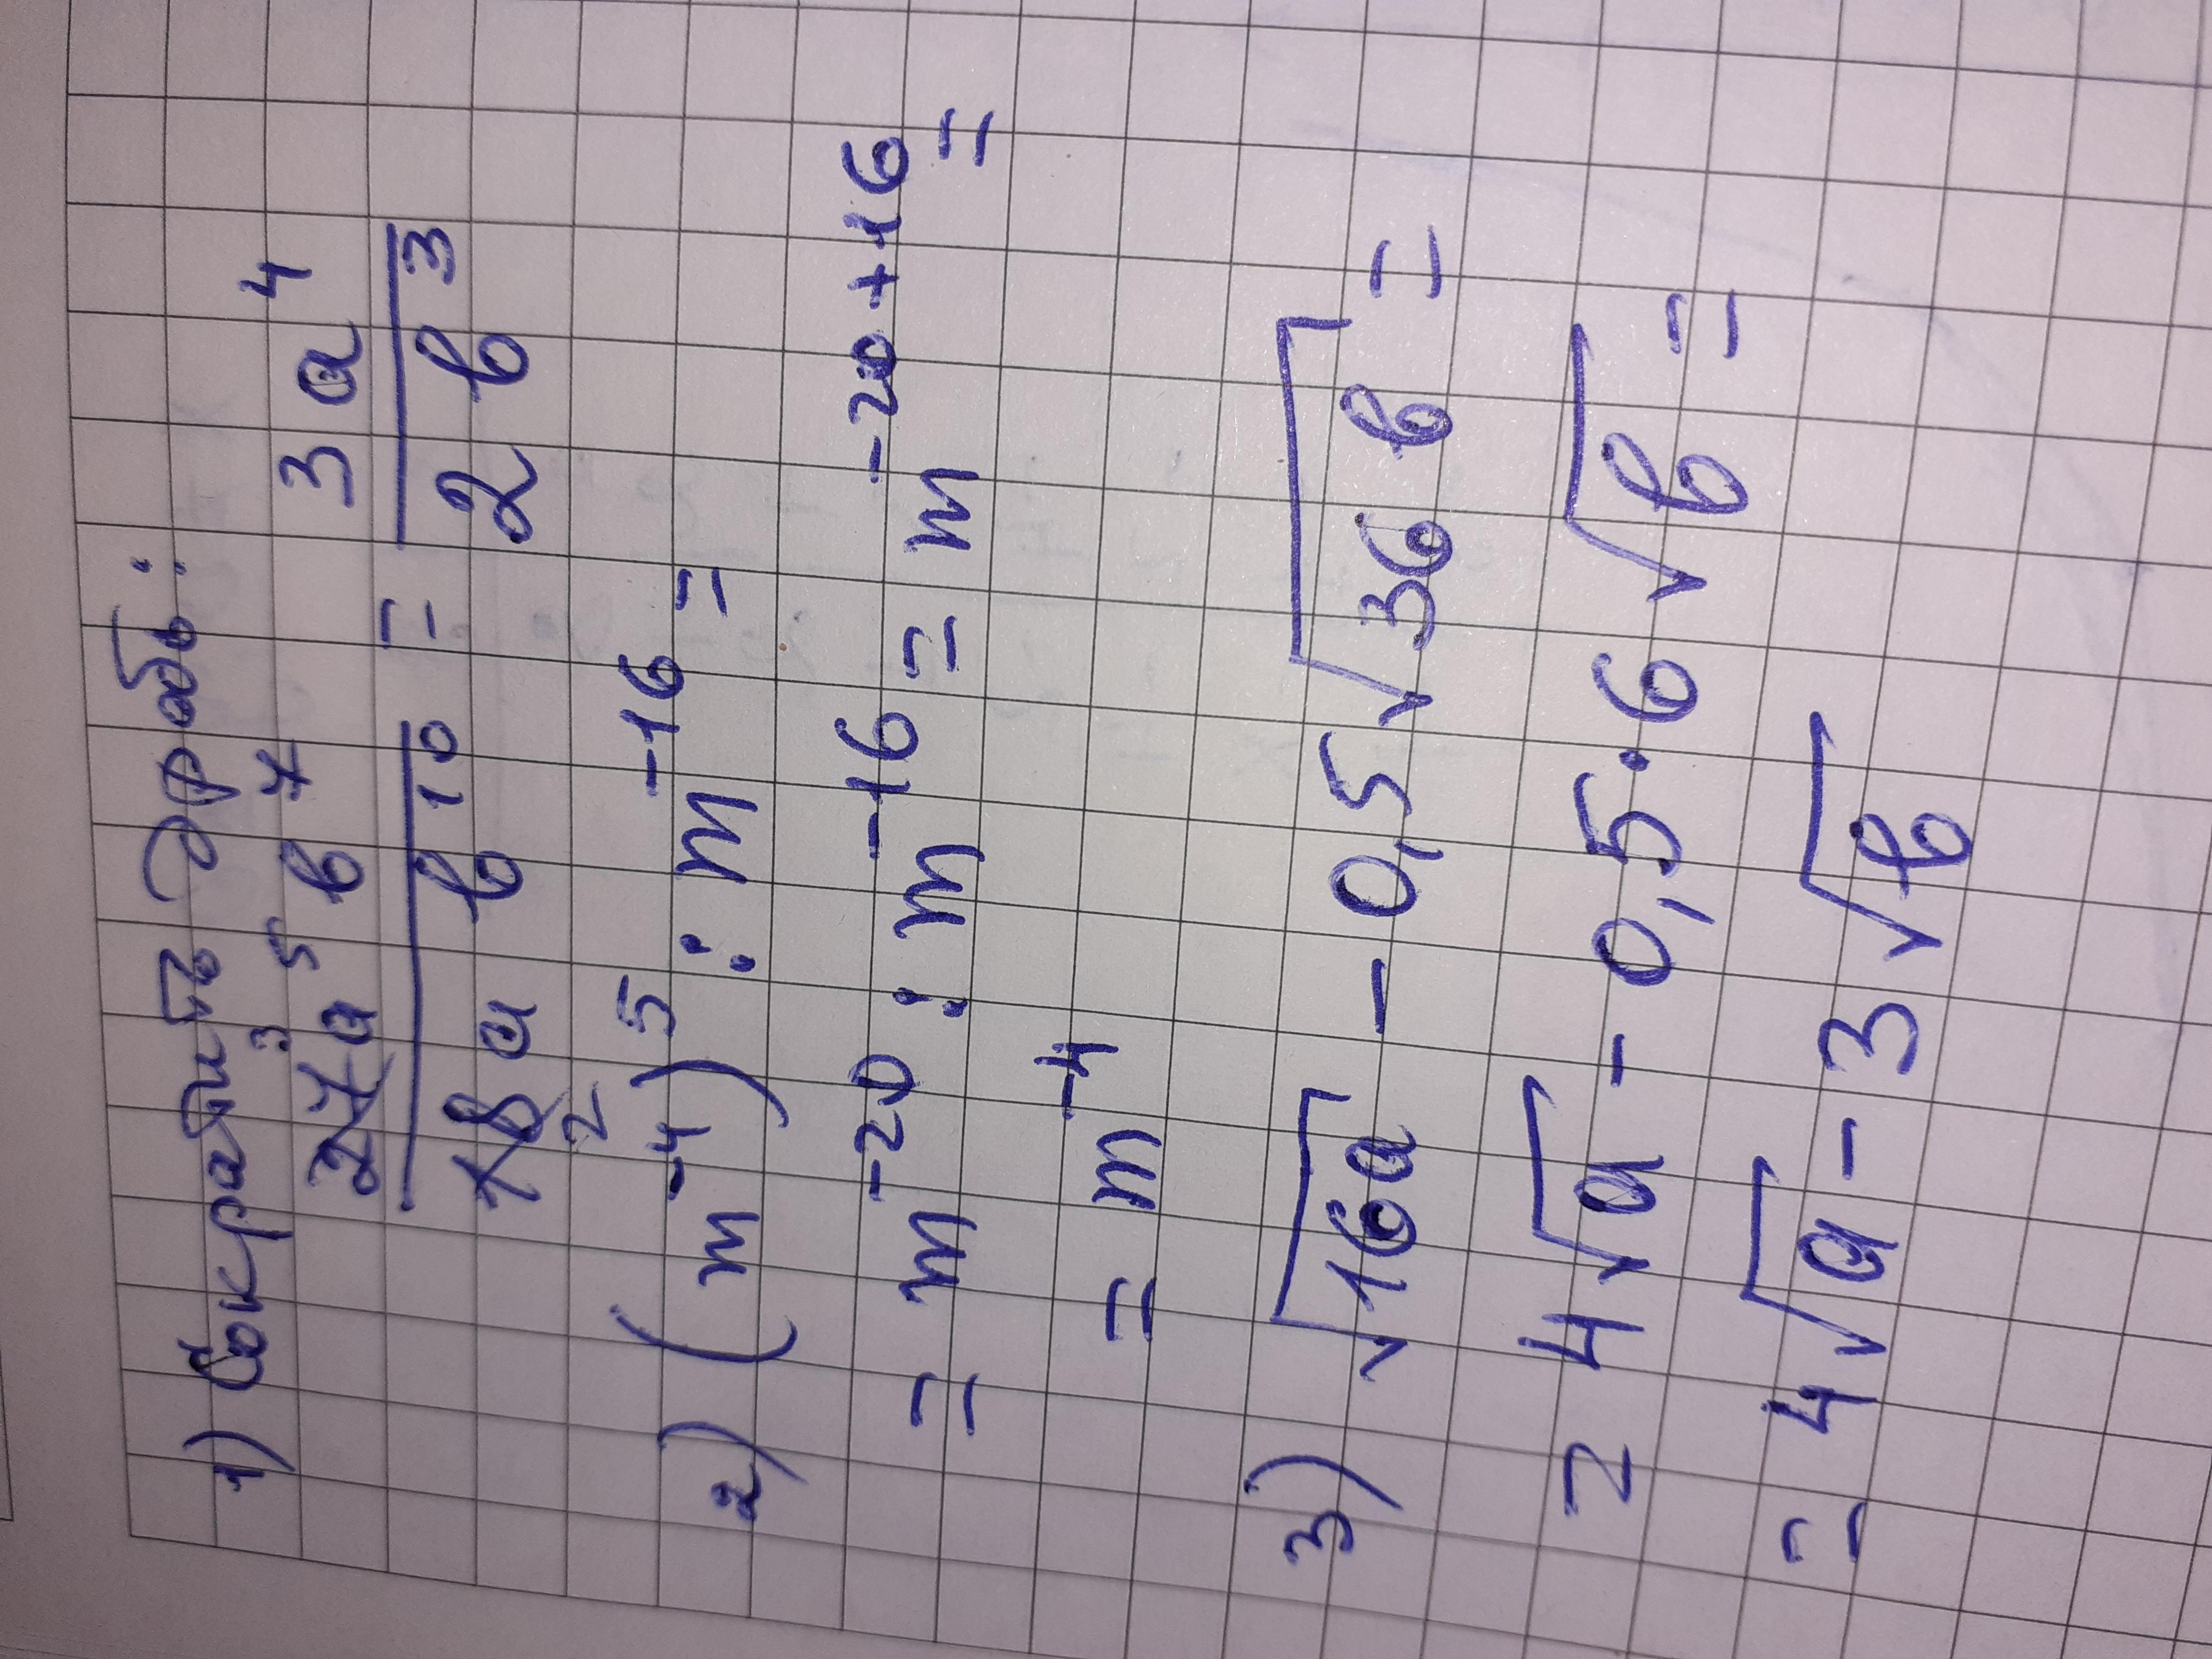 1) Сократить дробь:
27³a⁵b⁷ / 18₂ab¹⁰ = 3a⁴ / 2b³
2) (m⁻⁴)⁵ : m⁻¹⁶ =
= m⁻²⁰ : m⁻¹⁶ = m⁻²⁰⁺¹⁶ =
= m⁻⁴
3) √16a − 0,5√36b =
= 4√a − 0,5·6√b =
= 4√a − 3√b